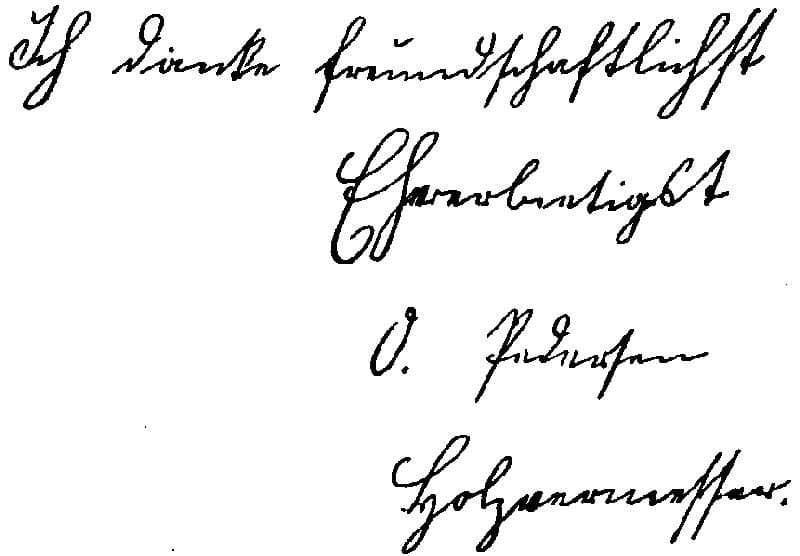 Ich danke freundschaftlichst
Ehrerbietigst
O. Pedersen
Holzvermesser.